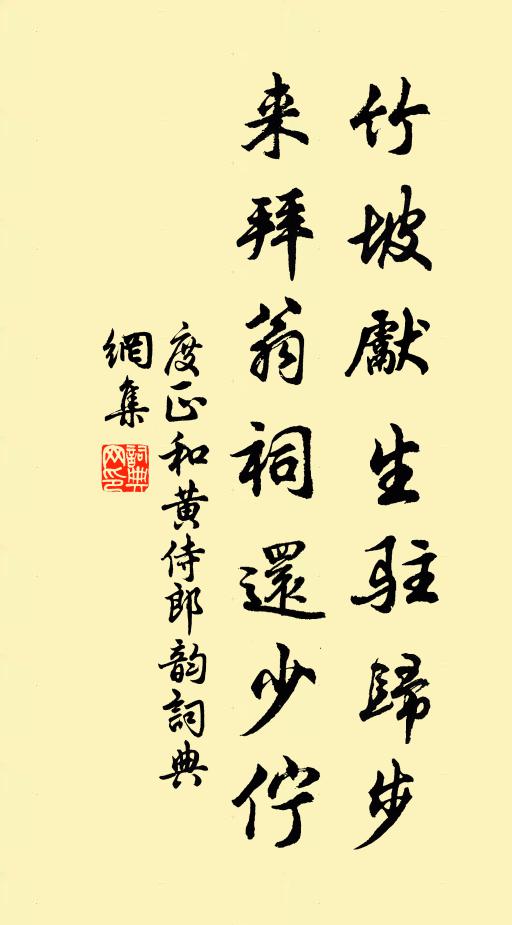 竹坡獻生駐歸步
来拜翁祠還少佇
度正和黄侍郎韵詞典
網集
詞典
网印